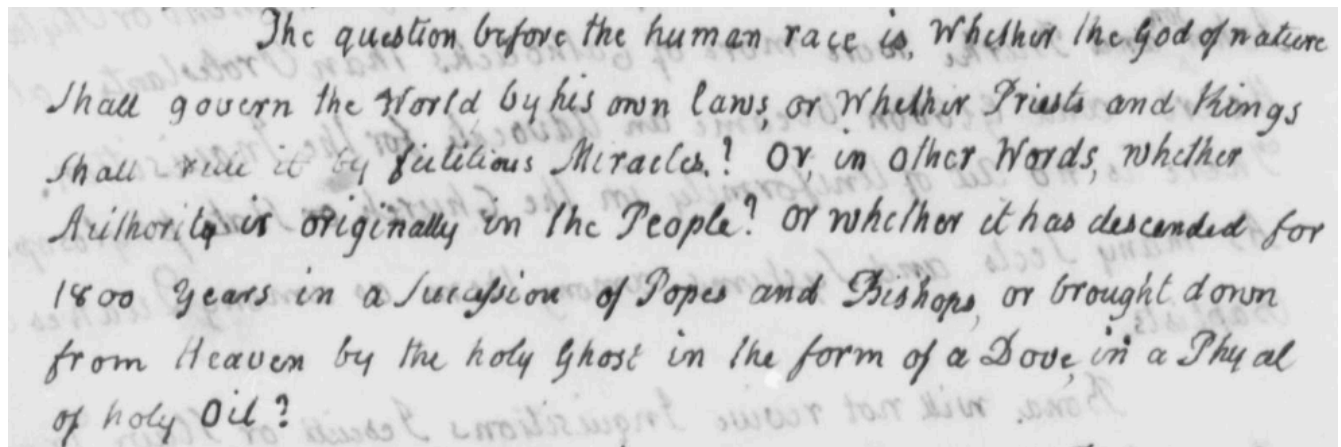 The question before the human race is, Whether the God of nature
Shall govern the World by his own laws, or Whether Priests and Kings
Shall rule it by fictitious Miracles.? Or, in other Words, whether
Authority is originally in the People? or whether it has descended for
1800 Years in a succession of Popes and Bishops, or brought down
from Heaven by the holy Ghost in the form of a Dove, in a Phyal
of holy Oil?